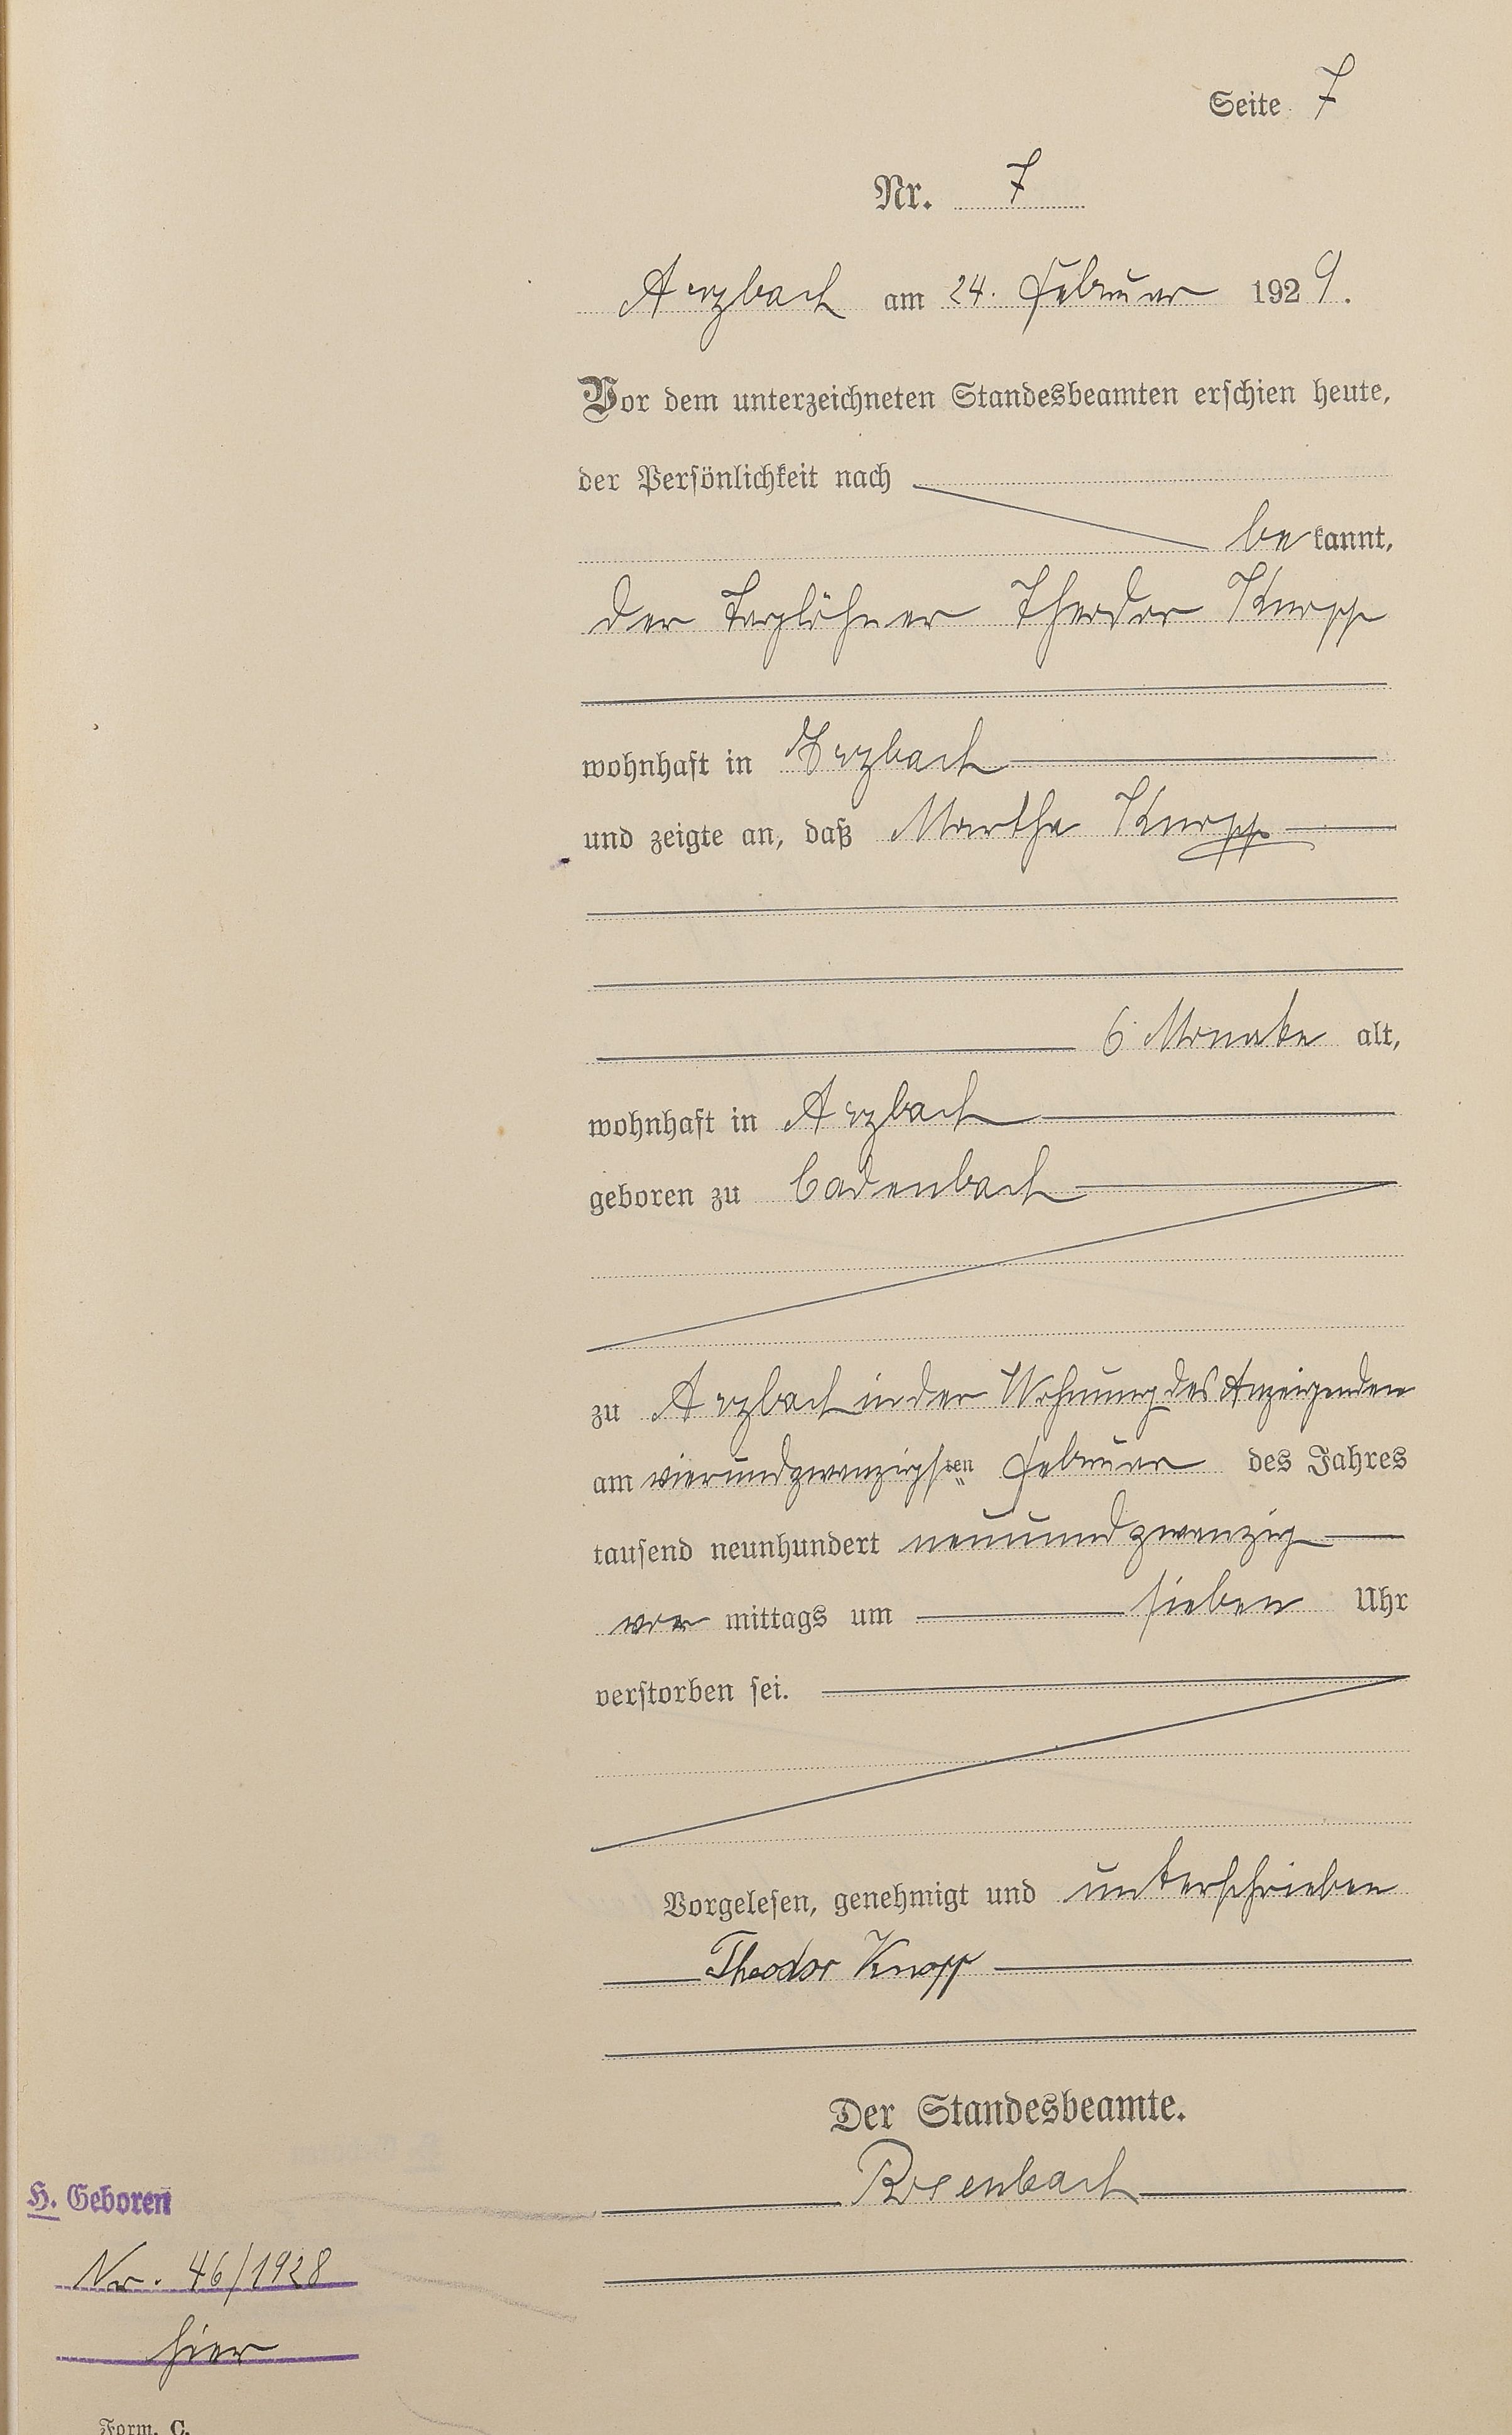 Seite 7
Nr. 7
Arzbach am 24. Februar 1929.
Vor dem unterzeichneten Standesbeamten erschien heute,
der Persönlichkeit nach
be kannt,
der Taglöhner Theodor Knopp
wohnhaft in Arzbach
und zeigte an, daß Martha Knopp
6 Monate alt,
wohnhaft in Arzbach
geboren zu Cadenbach
zu Arzbach in der Wohnung des Anzeigenden
am vierundzwanzigsten Februar des Jahres
tausend neunhundert neunundzwanzig
vor mittags um sieben Uhr
verstorben sei.
Vorgelesen, genehmigt und unterschrieben
Theodor Knopp
Der Standesbeamte.
Rosenbach
H. Geboren
Nr. 46/1928
hier
Form. C.